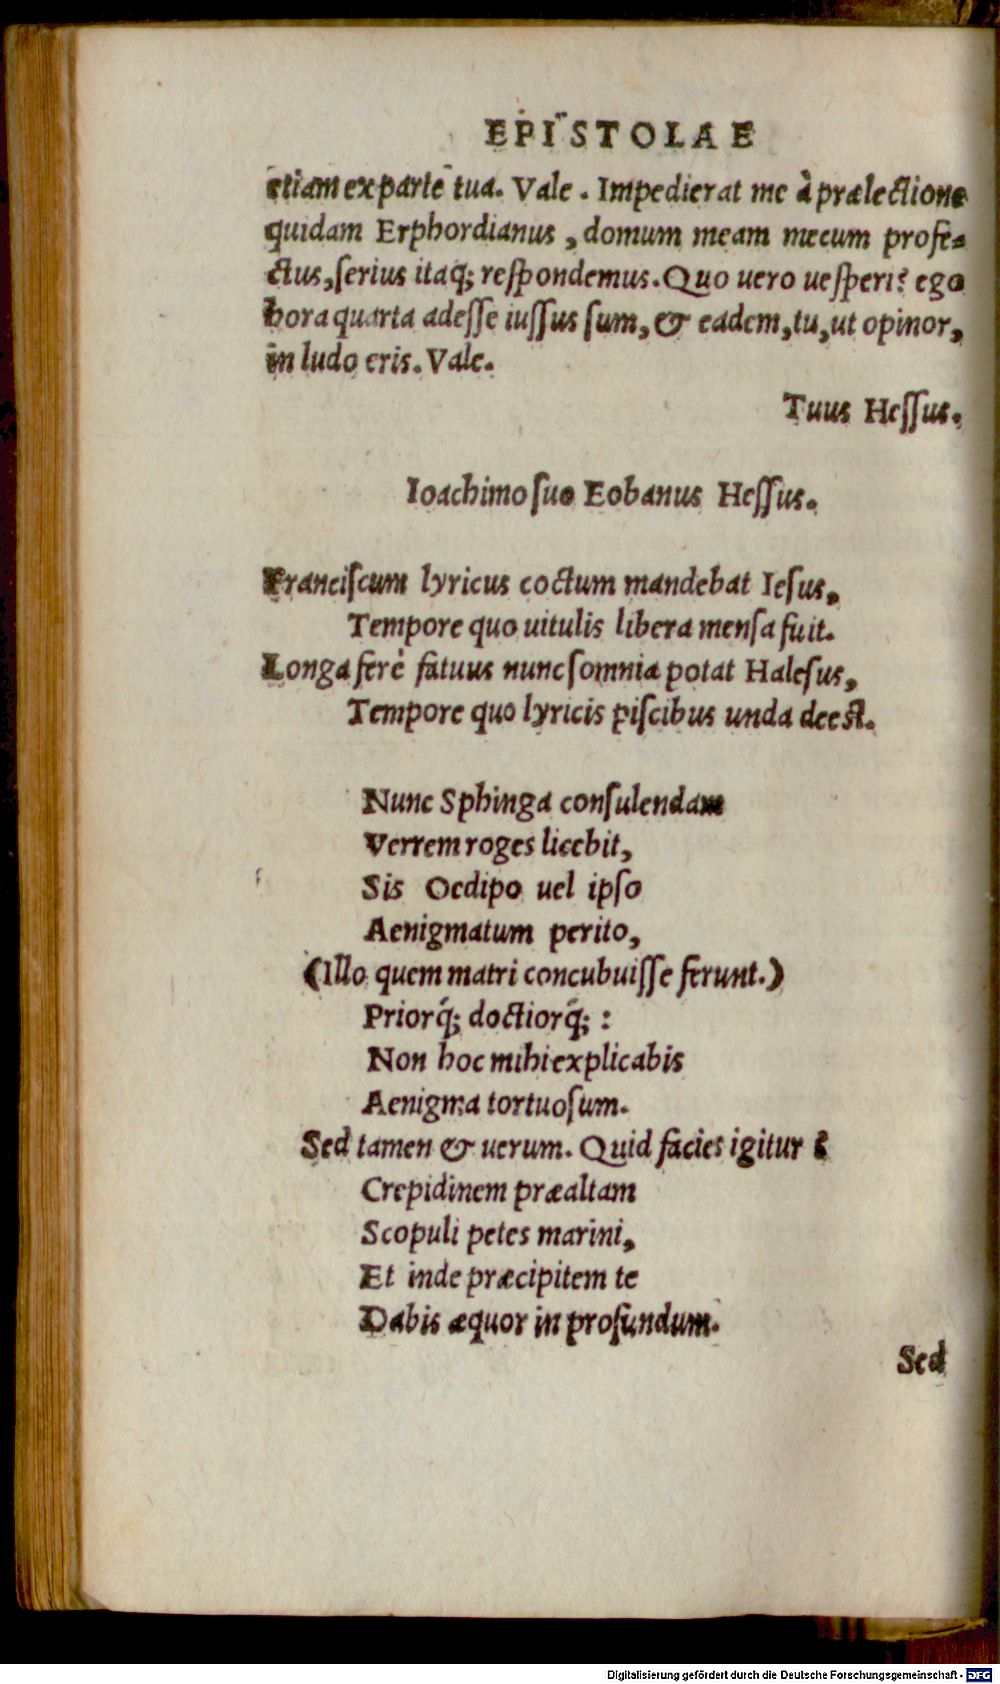 EPISTOLAE
etiam ex parte tua. Vale. Impedierat me à prælectione
quidam Erphordianus, domum meam mecum profe-
ctus, serius itaq; respondemus. Quo uero uesperi? ego
hora quarta adesse iussus sum, & eadem, tu, ut opinor,
in ludo eris. Vale.
Tuus Hessus.
Ioachimo suo Eobanus Hessus.
Franciscum lyricus coctum mandebat Iesus,
Tempore quo uitulis libera mensa fuit.
Longa ferè fatuus nunc somnia potat Halesus,
Tempore quo lyricis piscibus unda deest.
Nunc Sphinga consulendam
Verrem roges licebit,
Sis Oedipo uel ipso
Aenigmatum perito,
(Illo quem matri concubuisse ferunt.)
Priorq́; doctiorq́; :
Non hoc mihi explicabis
Aenigma tortuosum.
Sed tamen & uerum. Quid facies igitur?
Crepidinem præaltam
Scopuli petes marini,
Et inde præcipitem te
Dabis æquor in profundum.
Sed
Digitalisierung gefördert durch die Deutsche Forschungsgemeinschaft - DFG